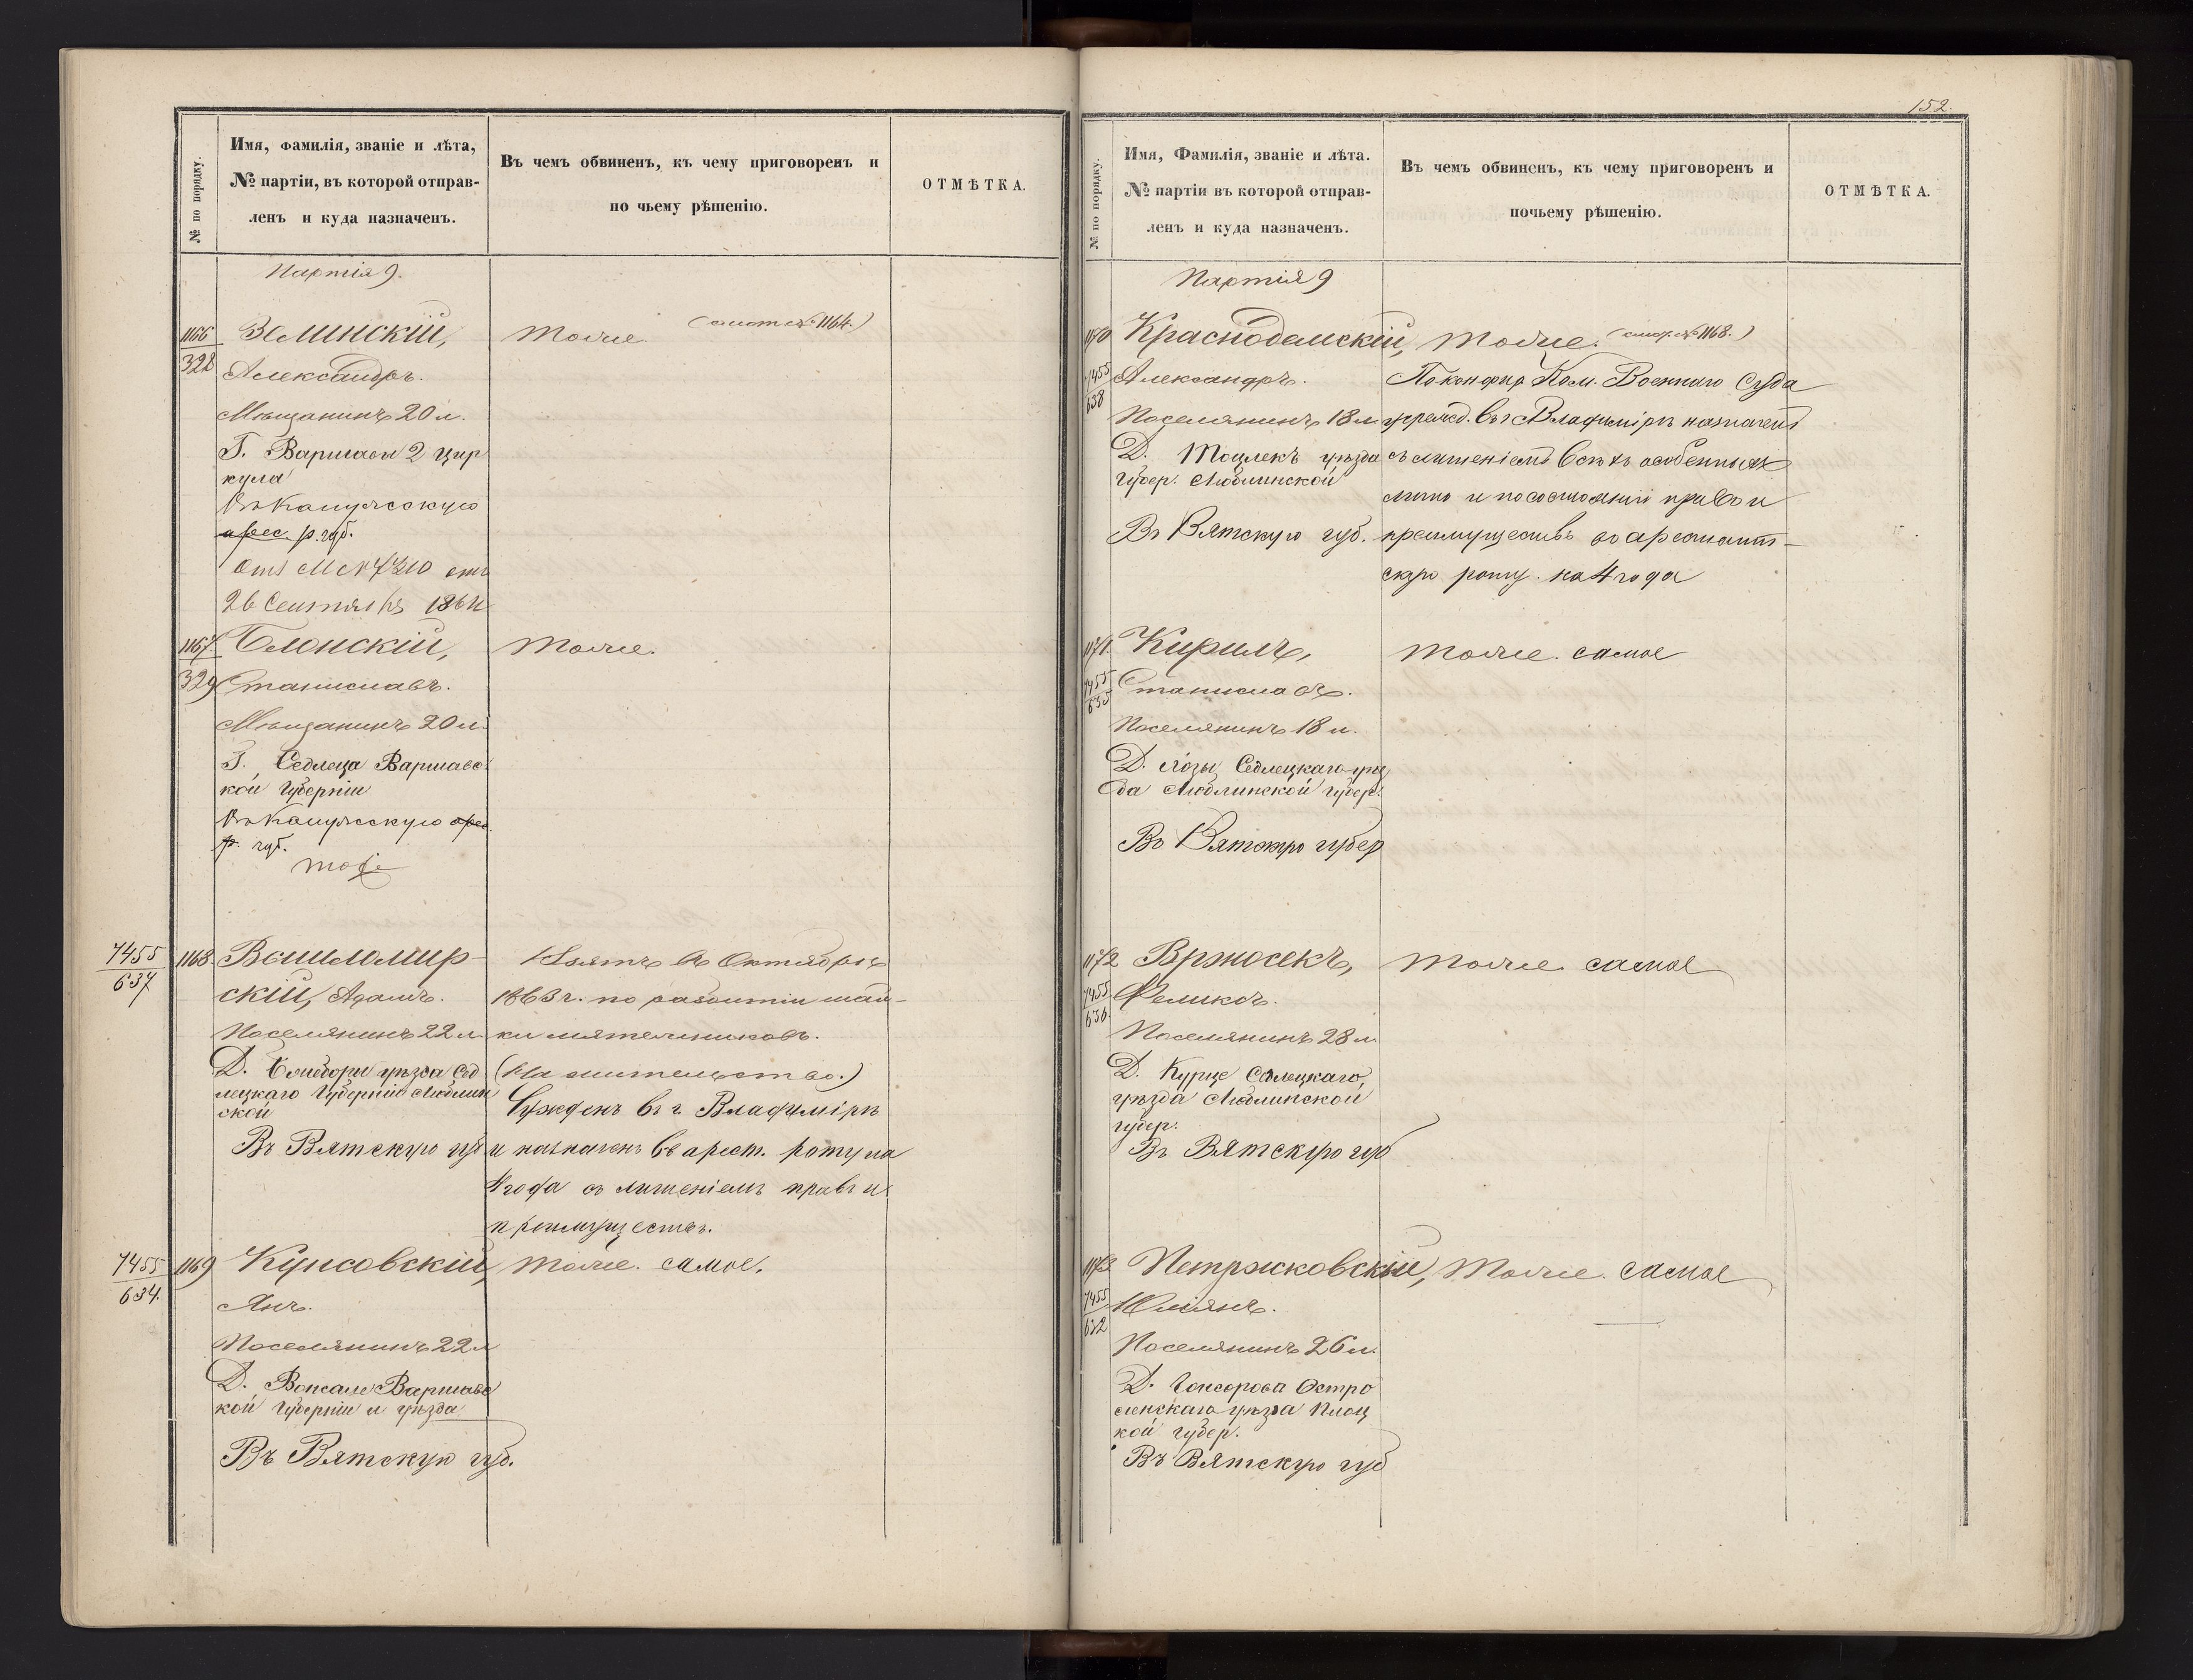 № по порядку.
Имя, фамилія, званіе и лѣта,
№ партіи, въ которой отправ-
ленъ и куда назначенъ.
Въ чемъ обвиненъ, къ чему приговоренъ и
по чьему рѣшенію.
ОТМѢТКА.
Партія 9.
1166
328
Залинскій,
Александръ.
Мѣщанинъ 20 л.
Г. Варшавы 2 цир
кула
Въ Калужскую
арес. р. губ.
26 Сентября 1864
Тоже (смот. № 1164.)
1167
329
Блонскій,
Станиславъ.
Мѣщанинъ 20 л.
Г. Седлеца Варшавс
кой Губерніи
Въ Калужскую арес.
р. губ.
тоже
Тоже.
7455
637
1168.
скій, Адамъ.
Поселянинъ 22 л.
Д. уѣзда Сед
лецкаго Губерніи Люблин
ской
Въ Вятскую губ
Взятъ въ Октябрѣ
1863 г. по разбитіи шай-
ки мятежниковъ.
(На жительство.)
Сужденъ въ г. Владимірѣ
и назначенъ въ арест. роту на
4 года съ лишеніемъ правъ и
преимуществъ.
7455
634.
1169
Купсовскій
Янъ.
Поселянинъ 22 л
Д. Варшавс
кой Губерніи и уѣзда
Въ Вятскую губ.
Тоже самое.
152.
№ по порядку.
Имя, Фамилія, званіе и лѣта.
№ партіи въ которой отправ-
ленъ и куда назначенъ.
Въ чемъ обвиненъ, къ чему приговоренъ и
почьему рѣшенію.
ОТМѢТКА.
Партія 9
1170
7455
638
Краснодемскій,
Александръ.
Поселянинъ 18 л
Д. уѣзда
Губер. Люблинской
Въ Вятскую губ.
Тоже. (смот. № 1168.)
По конфир Ком. Военнаго Суда
учрежд. въ г Владимірѣ назначенъ
съ лишеніемъ всѣхъ особенныхъ
лично и по состоянію правъ и
преимуществъ въ арестант-
скую роту на 4 года
1171.
7455
635
Кирилъ,
Станиславъ.
Поселянинъ 18 л.
Д. Лозы Седлецкаго уѣз
да Люблинской губер.
Въ Вятскую губер
Тоже. самое
1172
7455
636
Вржосекъ,
Феликсъ.
Поселянинъ 28 л
Д. Курце Седлецкаго,
уѣзда Люблинской
губер.
Въ Вятскую губ
Тоже самое
1173
7455
632
Петржковскій,
Юліянъ.
Поселянинъ 26 л.
Д. Остро
ленскаго уѣзда Плоц
кой губер.
Въ Вятскую губ
Тоже. самое